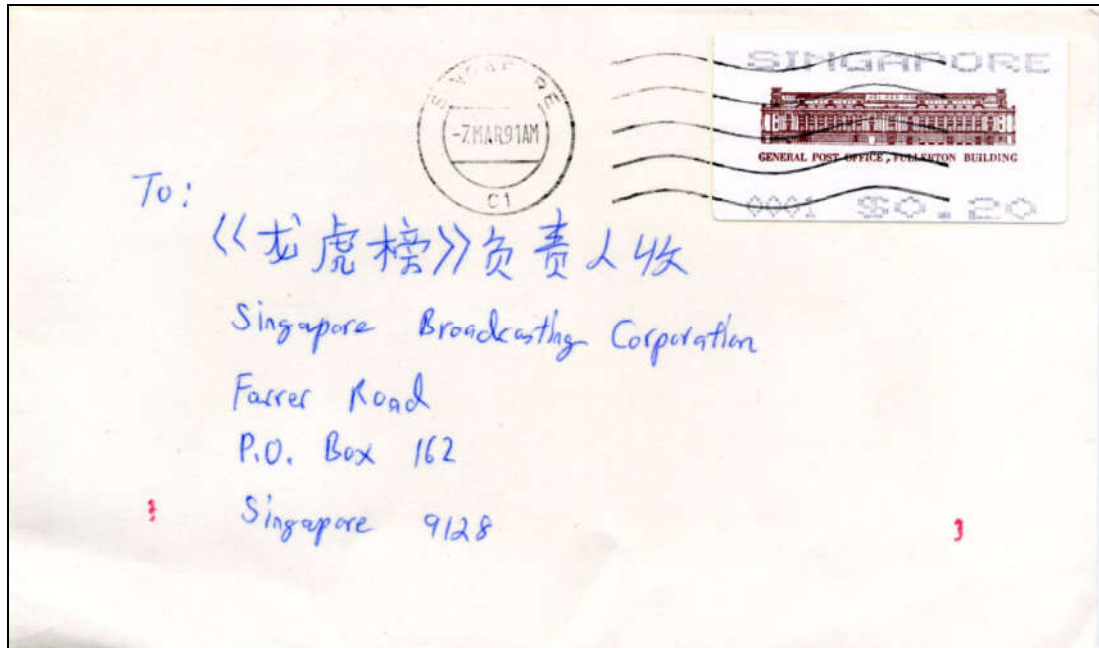 SINGAPORE
SINGAPORE
-7MAR91AM
C1
GENERAL POST OFFICE, FULLERTON BUILDING
0001 $0.20
To:
《龙虎榜》负责人收
Singapore Broadcasting Corporation
Farrer Road
P.O. Box 162
Singapore 9128
3
3